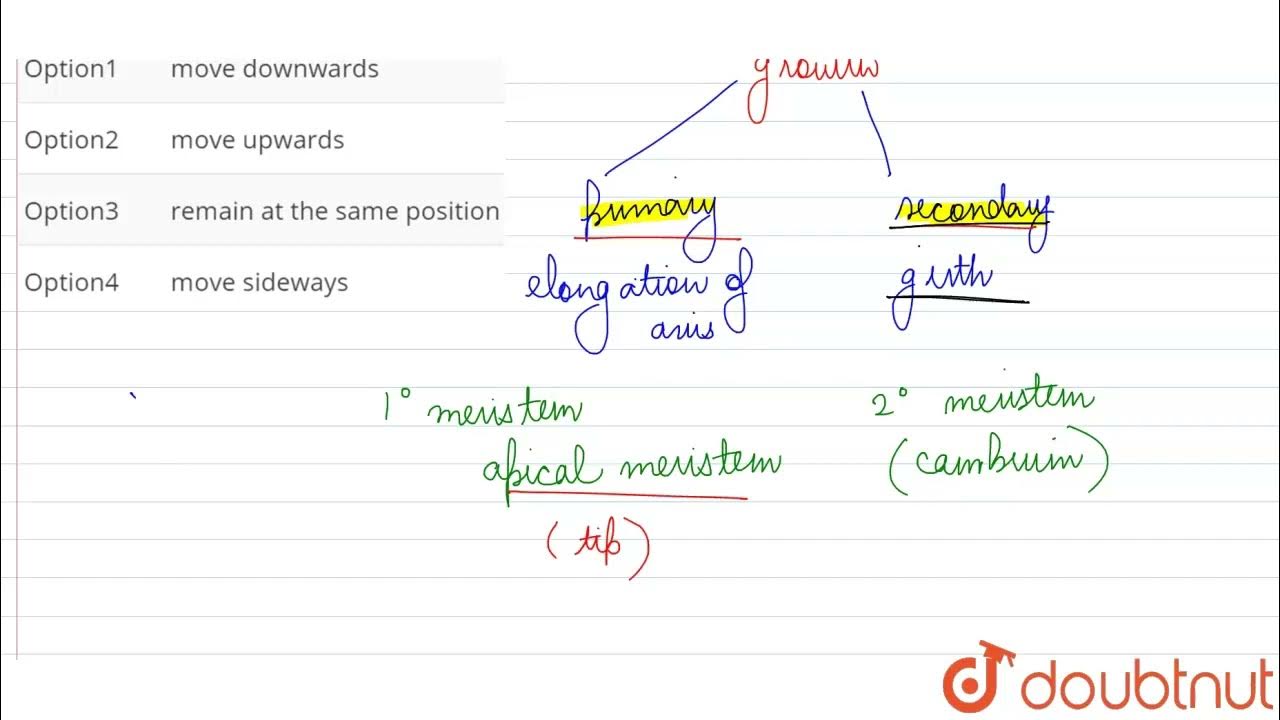 Option1 move downwards
Option2 move upwards
Option3 remain at the same position
Option4 move sideways
growth
primary
secondary
elongation of
axis
girth
1° meristem
2° meristem
apical meristem
(cambium)
(tip)
doubtnut